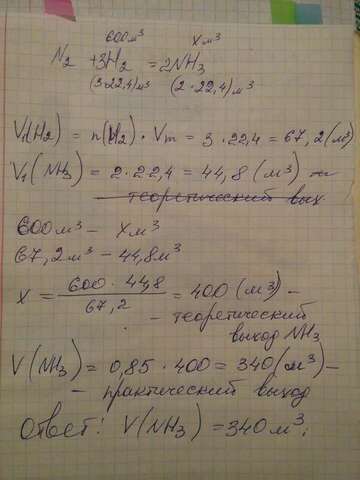 600м³ xм³
N₂ + 3H₂ = 2NH₃
(3·22,4)м³ (2·22,4)м³
V₁(H₂) = n(H₂) · Vm = 3·22,4 = 67,2(м³)
V₁(NH₃) = 2·22,4 = 44,8(м³) –
– теоретический вых
600м³ – xм³
67,2м³ – 44,8м³
x = 600 · 44,8 / 67,2 = 400(м³) –
– теоретический
выход NH₃
V(NH₃) = 0,85 · 400 = 340(м³) –
– практический выход
Ответ: V(NH₃) = 340м³;